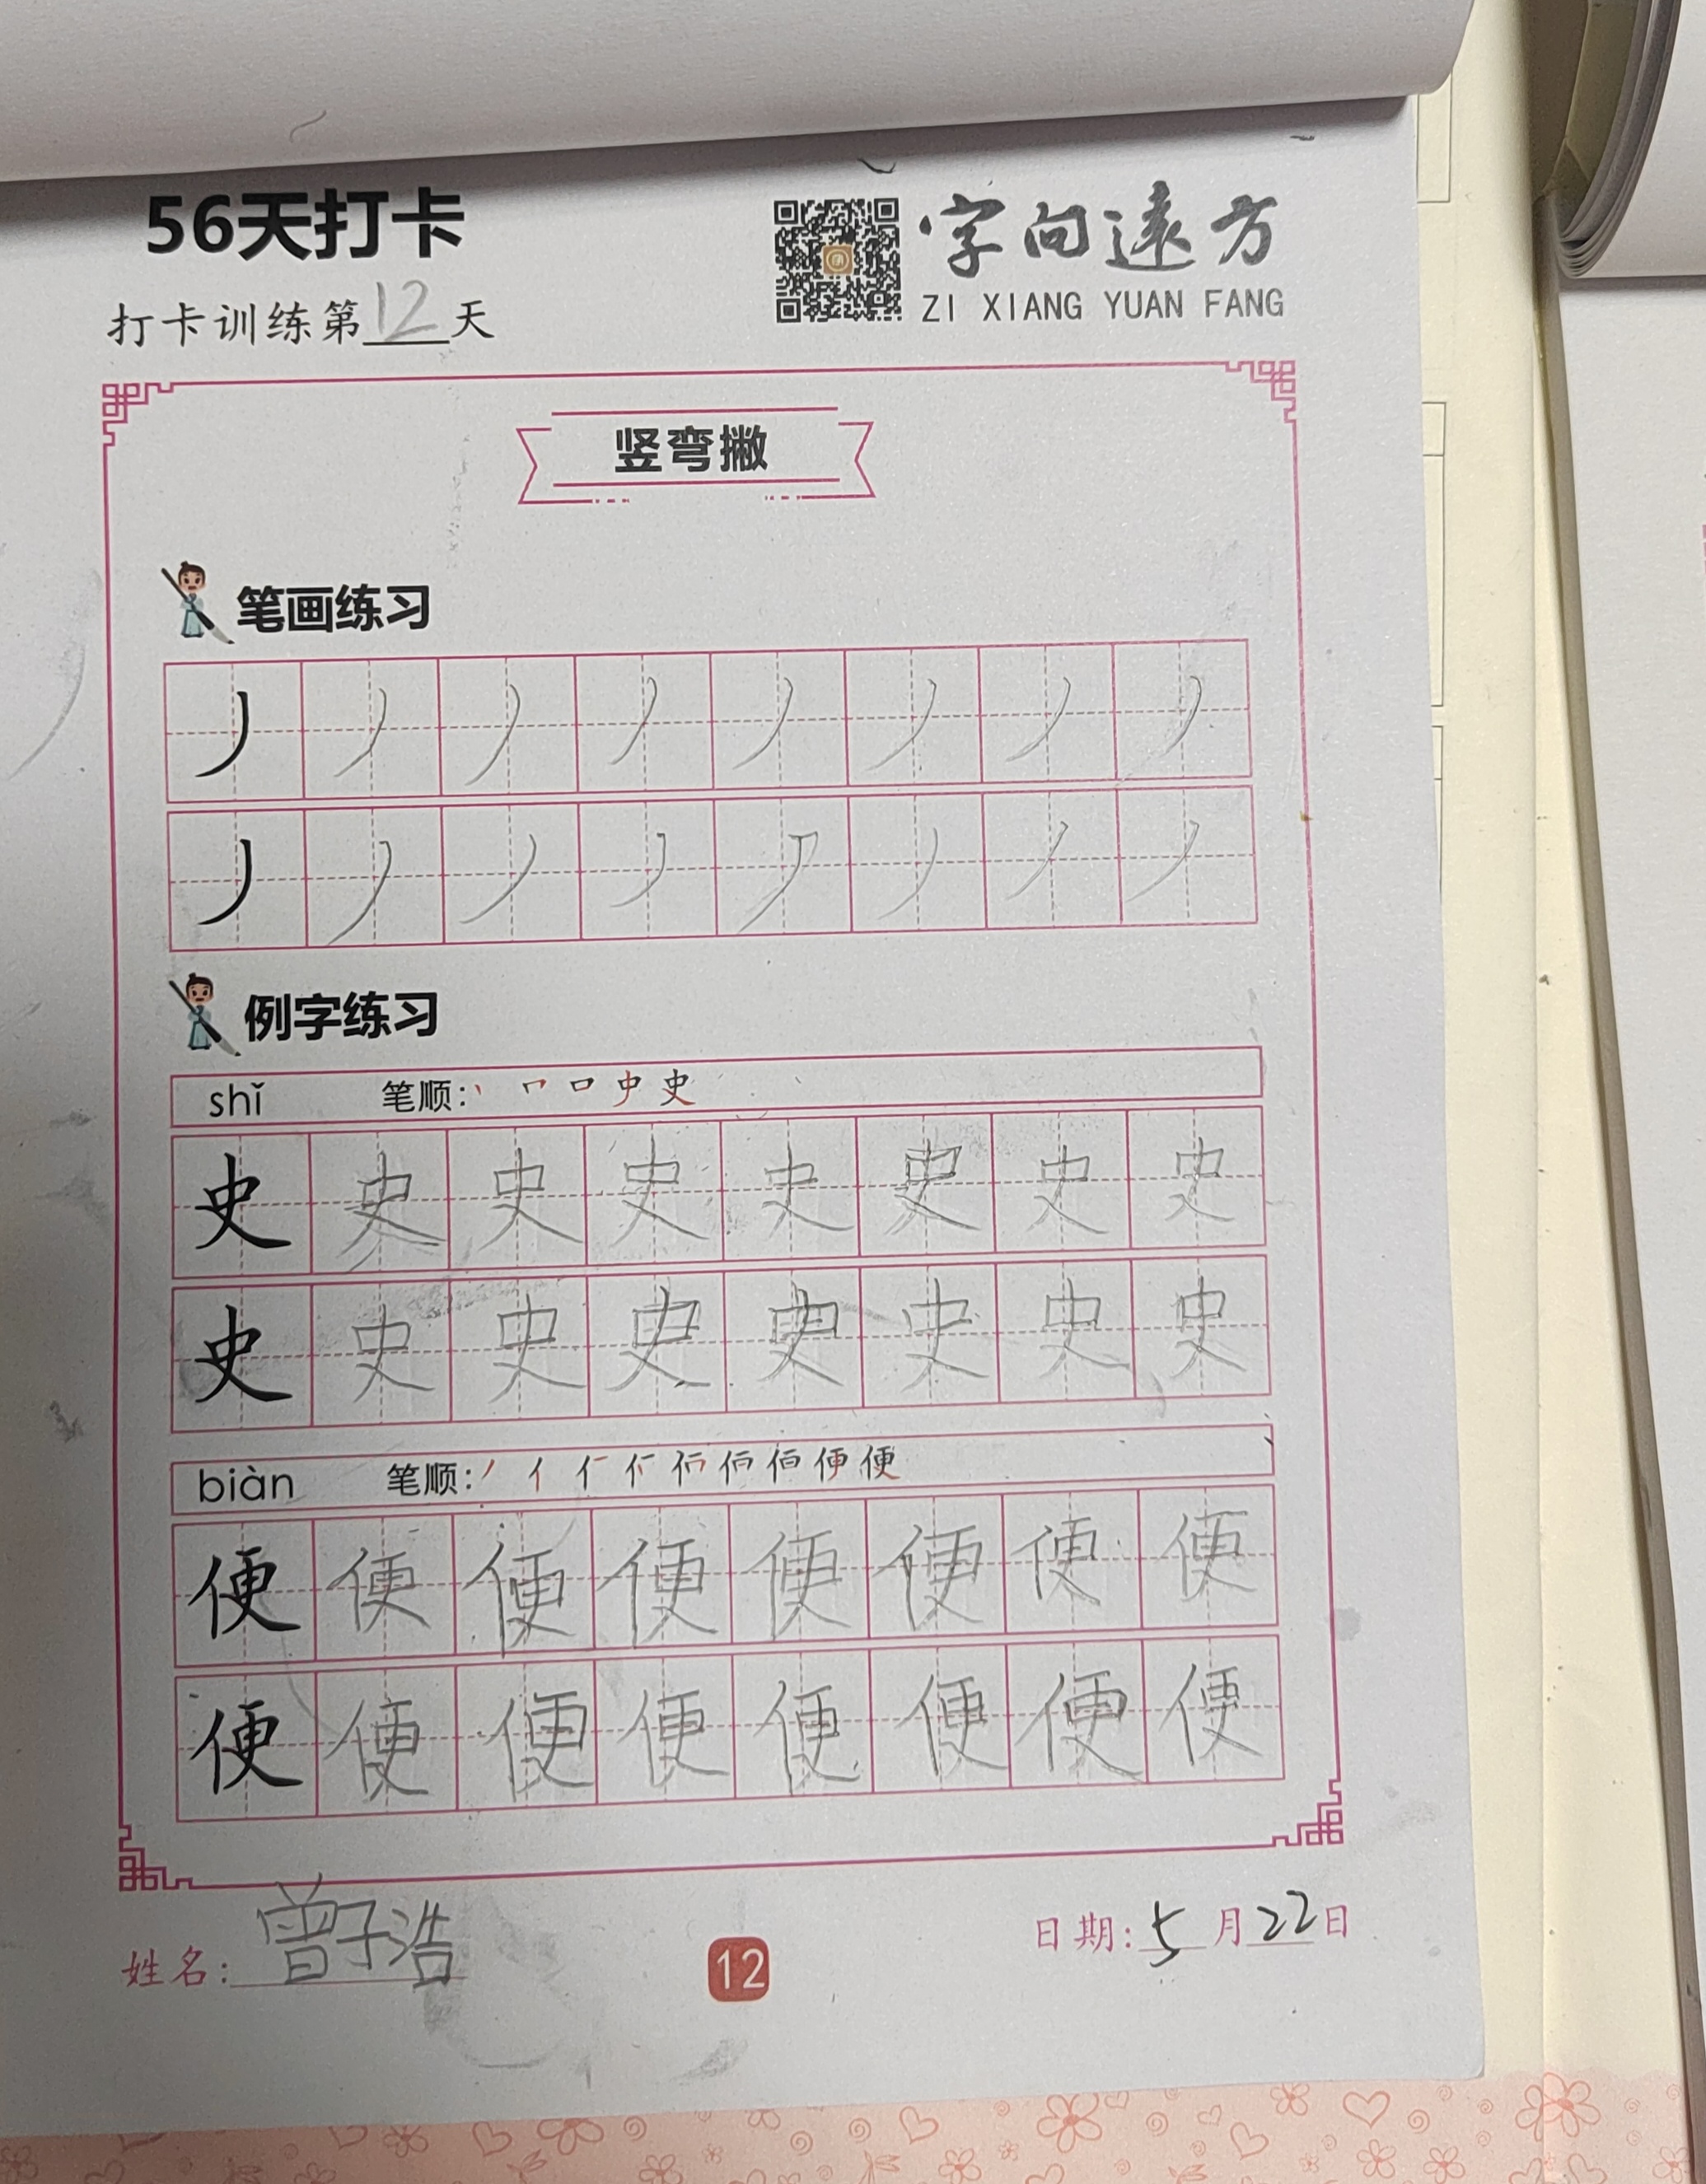 56天打卡
字向遠方
打卡训练第12天
ZI XIANG YUAN FANG
竖弯撇
笔画练习
丿 丿 丿 丿 丿 丿 丿 丿
丿 丿 丿 丿 丿 丿 丿 丿
例字练习
shǐ 笔顺:
史 史 史 史 史 史 史 史
史 史 史 史 史 史 史 史
biàn 笔顺:
便 便 便 便 便 便 便 便
便 便 便 便 便 便 便 便
姓名:曾子浩
12
日期:5月22日